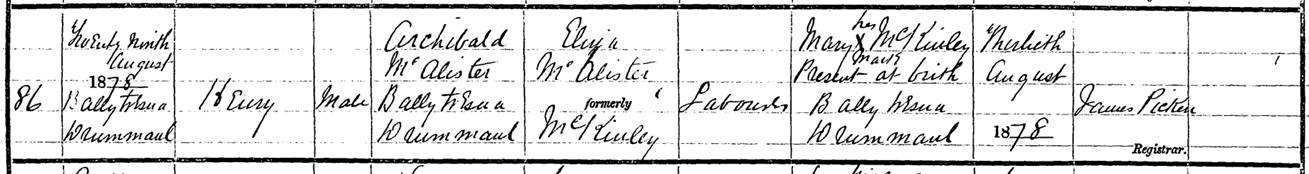 86
Twenty Ninth
August
1878
Ballytresna
Drummaul
Henry
Male
Archibald
McAlister
Ballytresna
Drummaul
Eliza
McAlister
formerly
McKinley
Labourer
her
Mary X McKinley
mark
Present at birth
Ballytresna
Drummaul
August
1878
James Picken
Registrar.